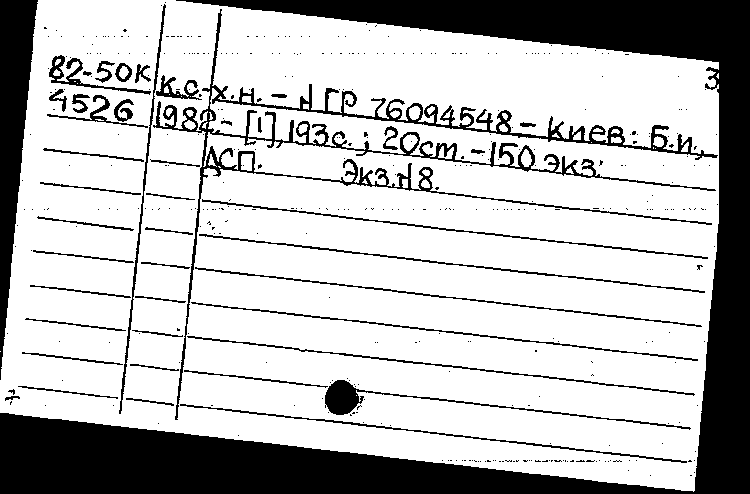 3
82-50К к.с.-х.н. - № ГР 76094548 - Киев: Б.и.,
4526 1982. - [1], 193с.; 20см. - 150 экз.
ДСП. Экз.№8.